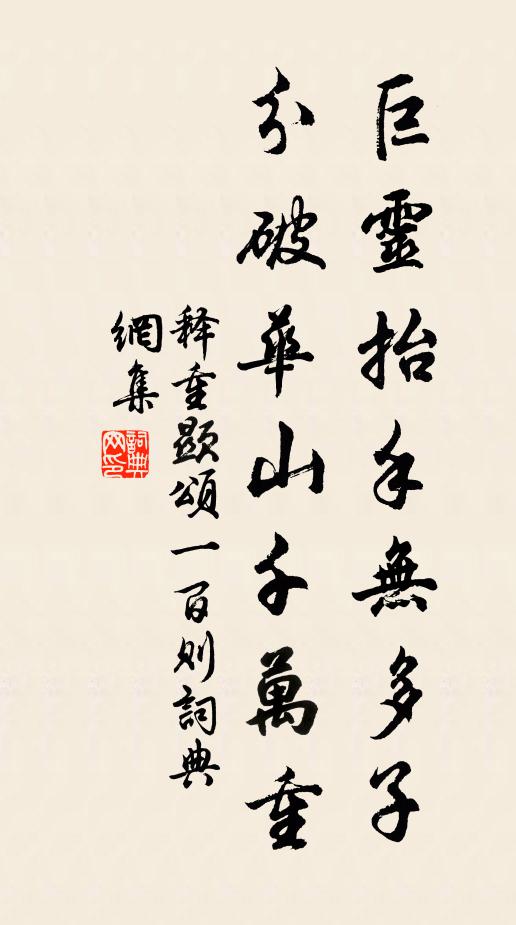 巨靈抬手無多子
分破華山千萬重
释重顯頌一百则詞典
網集
詞典网印